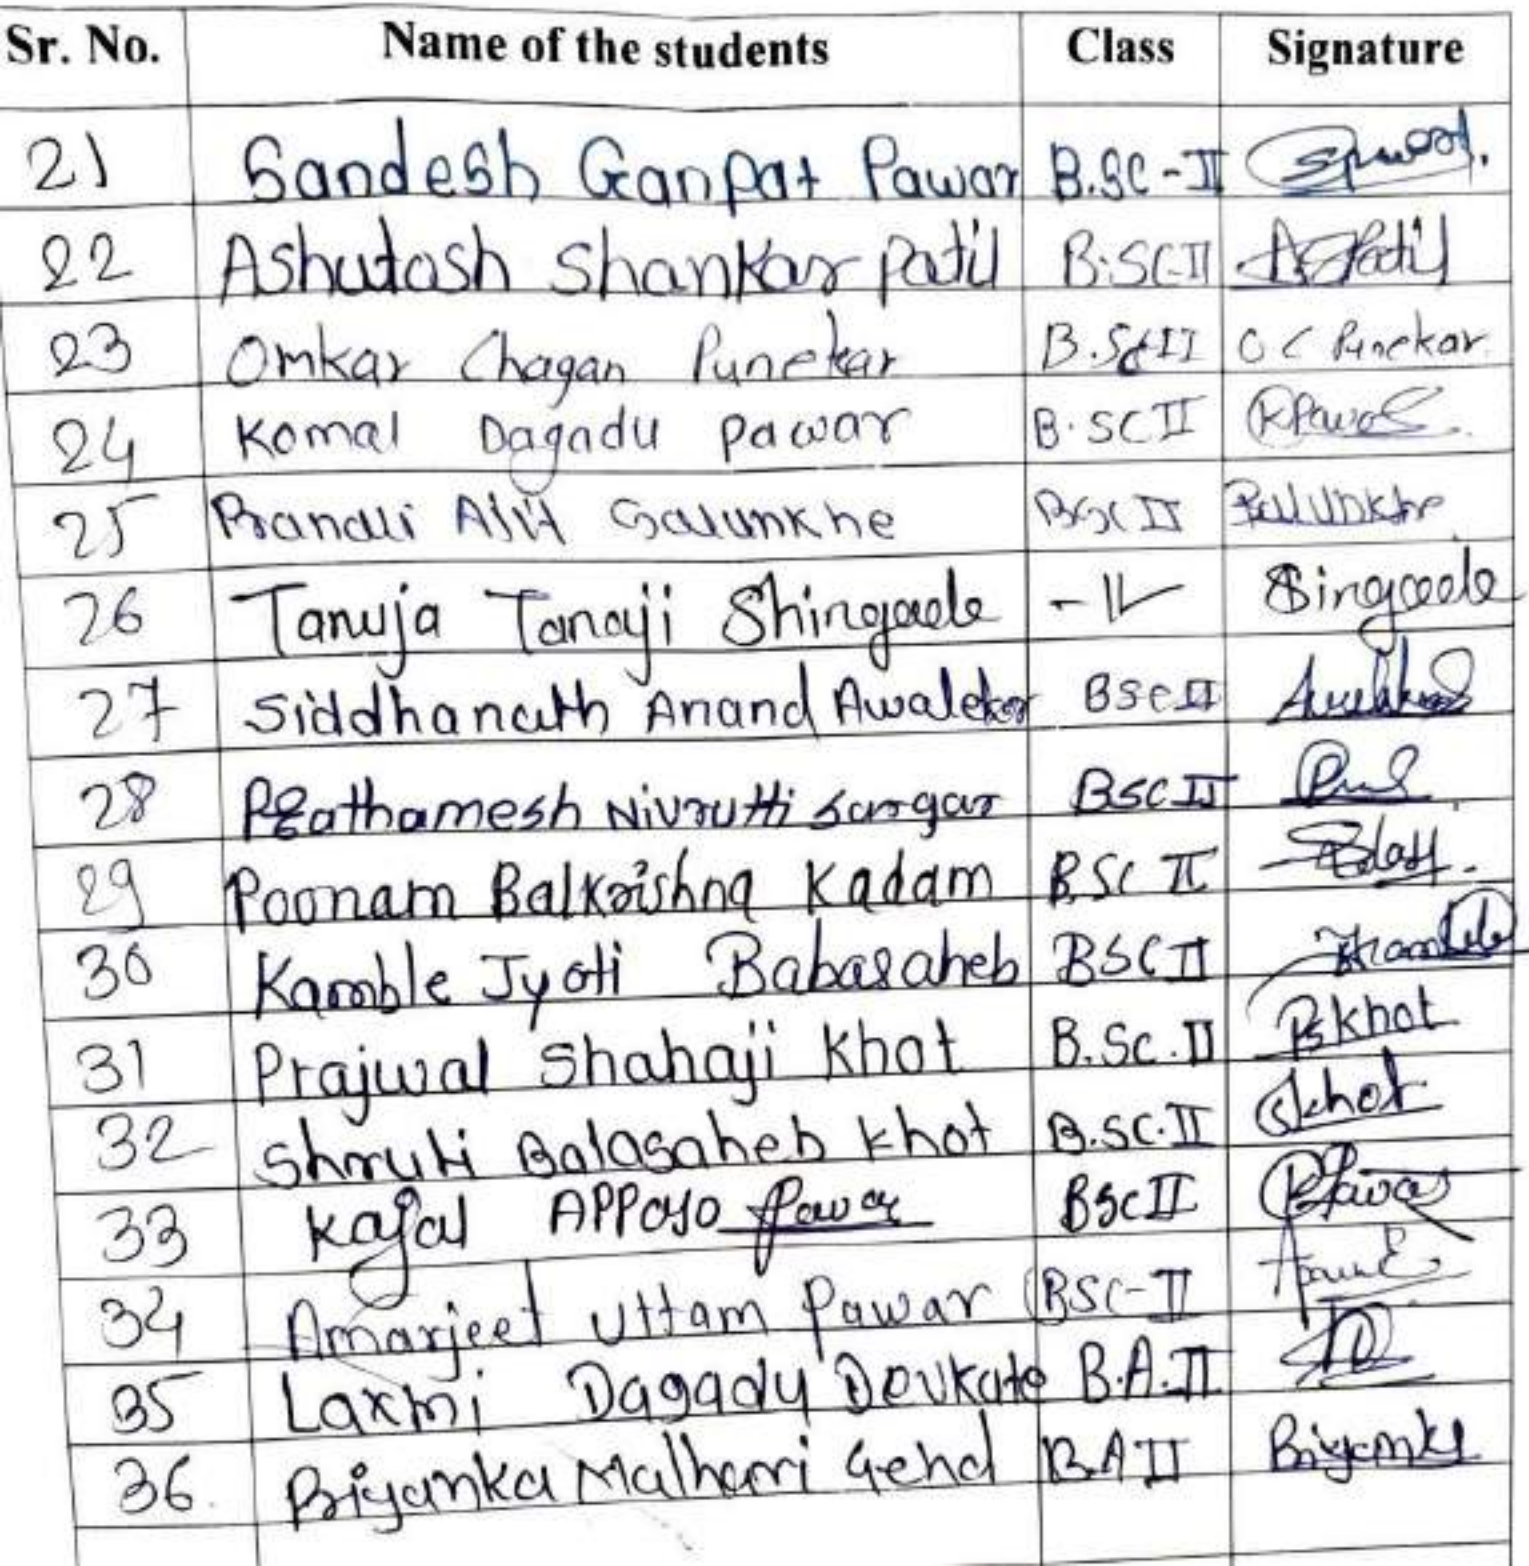 Sr. No. Name of the students Class Signature
21 Sandesh Ganpat Pawar B.SC-II Spawar.
22 Ashutosh Shankar Patil B.SC-II ASPatil
23 Omkar Chagan Punekar B.ScII O C Punekar
24 Komal Dagadu Pawar B.SC II KPawar
25 Pranali Ajit Salunkhe BSC II PSalunkhe
26 Tanuja Tanaji Shingade -11- Singade
27 Siddhanath Anand Awalekar BSc II
28 Prathamesh Nivrutti Sargar BSC II
29 Poonam Balkrishna Kadam B.SC II
30 Kamble Jyoti Babasaheb BSC II
31 Prajwal Shahaji Khot B.Sc.II PSKhot
32 Shruti Balasaheb Khot B.SC.II Skhot
33 Kajal APPaso Pawar BSc II
34 Amarjeet Uttam Pawar BSC-II
35 Laxmi Dagadu Devkate B.A.II
36. Priyanka Malhari Gend B.A II Priyanka